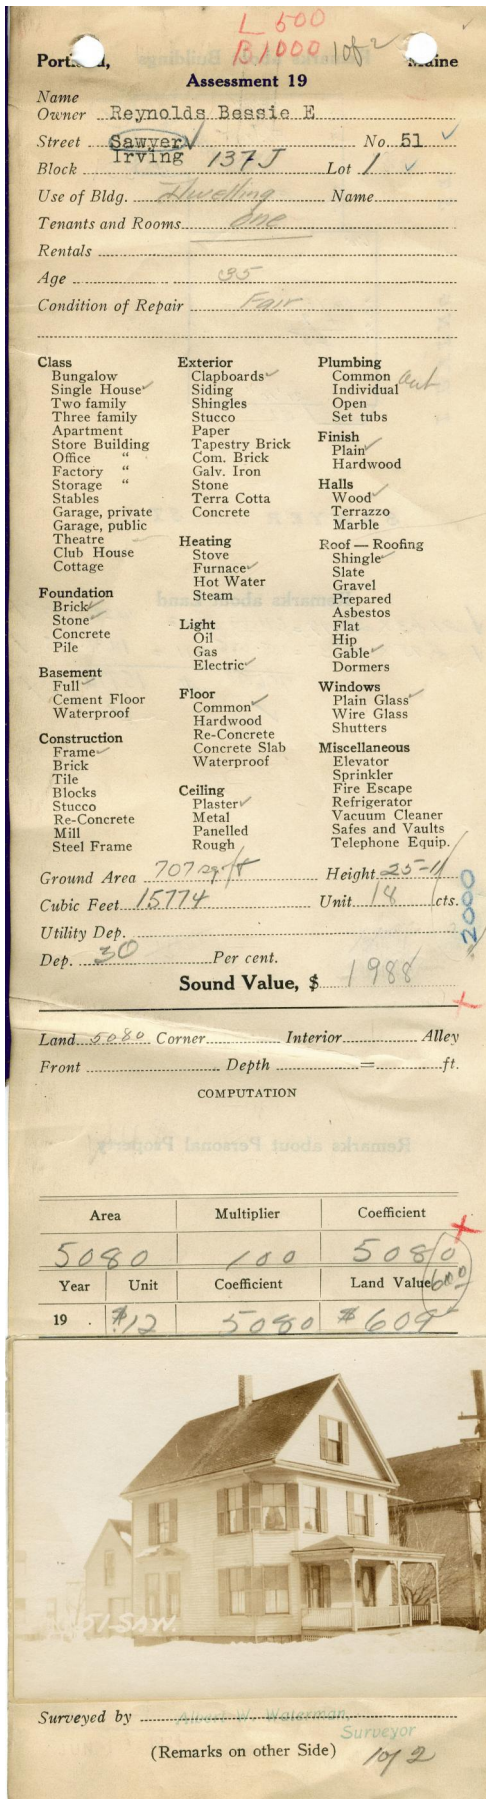 L 500
B 1000 1 of 2
Portland, Maine
Assessment 19
Name
Owner Reynolds Bessie E
Street Sawyer No. 51
Irving 137 J
Block Lot 1
Use of Bldg. Dwelling Name
Tenants and Rooms one
Rentals
Age 35
Condition of Repair Fair
Class
Bungalow
Single House ✓
Two family
Three family
Apartment
Store Building
Office "
Factory "
Storage "
Stables
Garage, private
Garage, public
Theatre
Club House
Cottage
Foundation
Brick ✓
Stone ✓
Concrete
Pile
Basement
Full ✓
Cement Floor
Waterproof
Construction
Frame ✓
Brick
Tile
Blocks
Stucco
Re-Concrete
Mill
Steel Frame
Exterior
Clapboards ✓
Siding
Shingles
Stucco
Paper
Tapestry Brick
Com. Brick
Galv. Iron
Stone
Terra Cotta
Concrete
Heating
Stove
Furnace ✓
Hot Water
Steam
Light
Oil
Gas
Electric ✓
Floor
Common ✓
Hardwood
Re-Concrete
Concrete Slab
Waterproof
Ceiling
Plaster ✓
Metal
Panelled
Rough
Plumbing
Common out
Individual
Open
Set tubs
Finish
Plain ✓
Hardwood
Halls
Wood ✓
Terrazzo
Marble
Roof — Roofing
Shingle ✓
Slate
Gravel
Prepared
Asbestos
Flat
Hip
Gable ✓
Dormers
Windows
Plain Glass ✓
Wire Glass
Shutters
Miscellaneous
Elevator
Sprinkler
Fire Escape
Refrigerator
Vacuum Cleaner
Safes and Vaults
Telephone Equip.
Ground Area 707 sq. ft Height 25-11
Cubic Feet 15774 Unit 18 cts.
2000
Utility Dep.
Dep. 30 Per cent.
Sound Value, $ 1988
Land 5080 Corner Interior Alley
Front Depth = ft.
COMPUTATION
Remarks about Personal Property
Area Multiplier Coefficient
5080 100 5080
Year Unit Coefficient Land Value 600
19 . $.12 5080 $ 609
51-SAW.
Surveyed by Albert W. Waterman,
Surveyor
(Remarks on other Side) 1 of 2